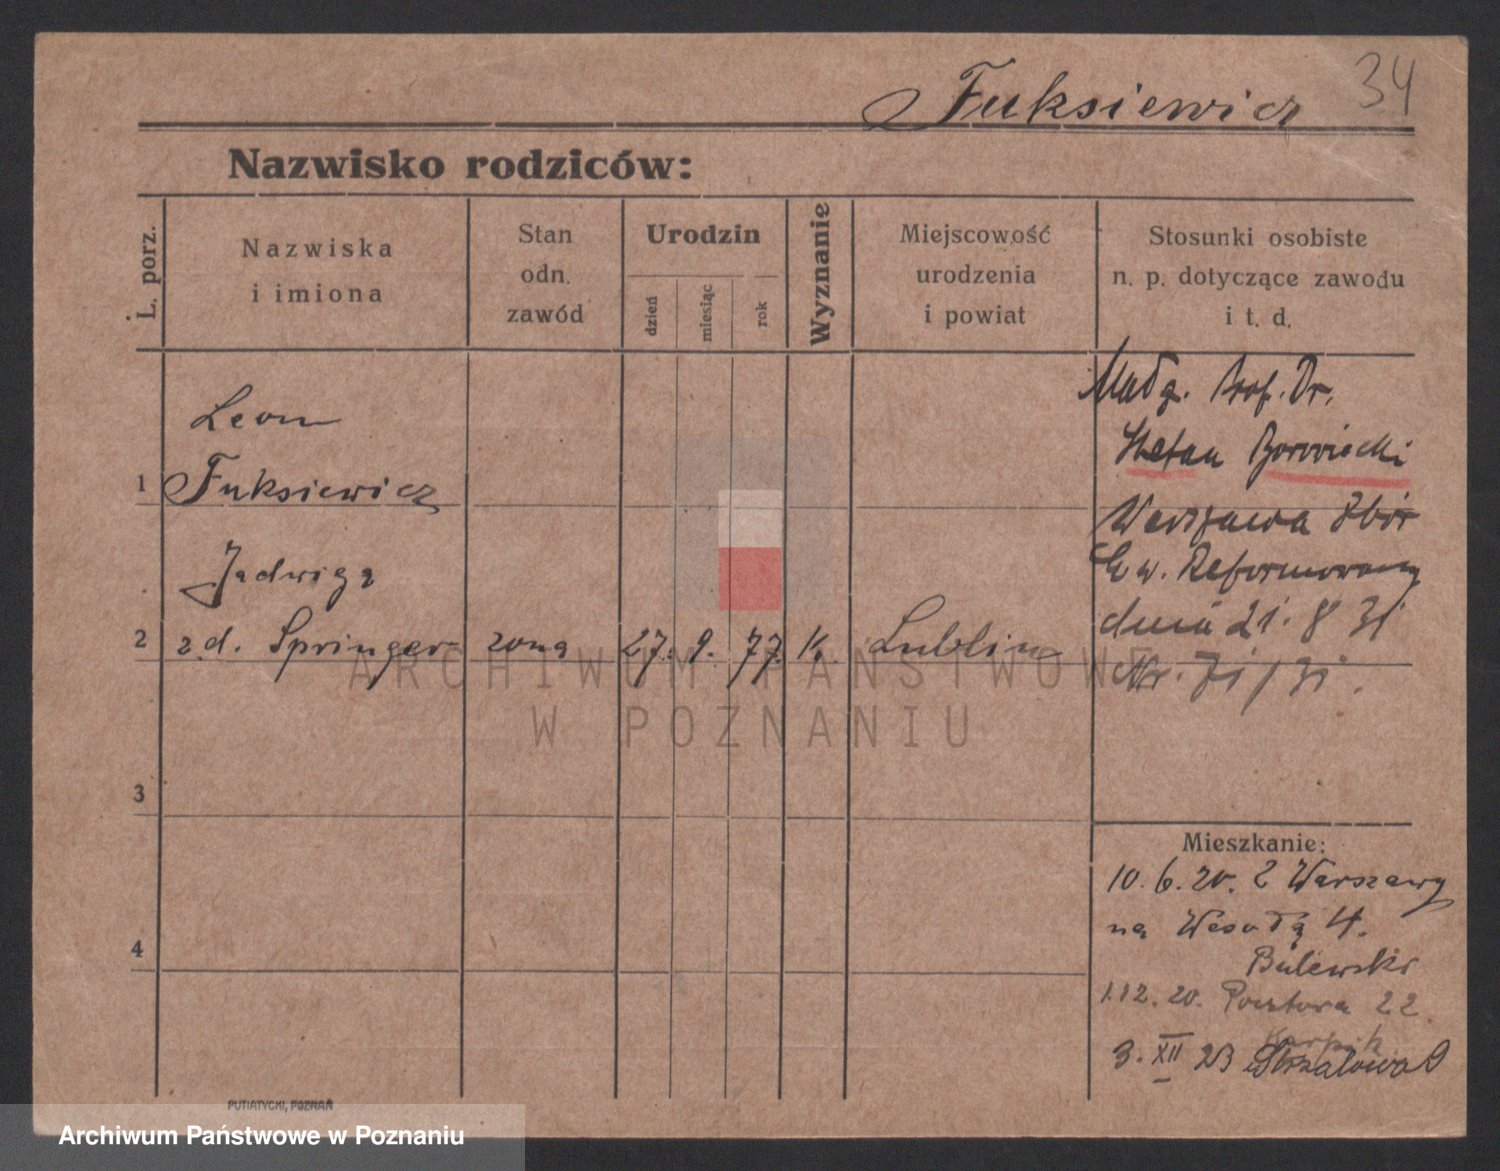 Fuksiewicz 34
Nazwisko rodziców:
L. porz.
Nazwiska
i imiona
Stan
odn.
zawód
Urodzin
dzień
miesiąc
rok
Wyznanie
Miejscowość
urodzenia
i powiat
Stosunki osobiste
n. p. dotyczące zawodu
i t. d.
1
Leon
Fuksiewicz
2
Jadwiga
z.d. Springer żona 27. 9. 77. k. Lublin
3
4
Małż. Prof. Dr.
Stefan Borowiecki
Warszawa Zbór
Ew. Reformowany
dnia 21. 8 31
Nr. 71/31.
Mieszkanie:
10. 6. 20. z Warszawy
na Wesołą 4.
1.12.20. Pocztowa 22.
3. XII 23 Strzałowa 9
PUTIATYCKI, POZNAŃ
ARCHIWUM PAŃSTWOWE
W POZNANIU
Archiwum Państwowe w Poznaniu